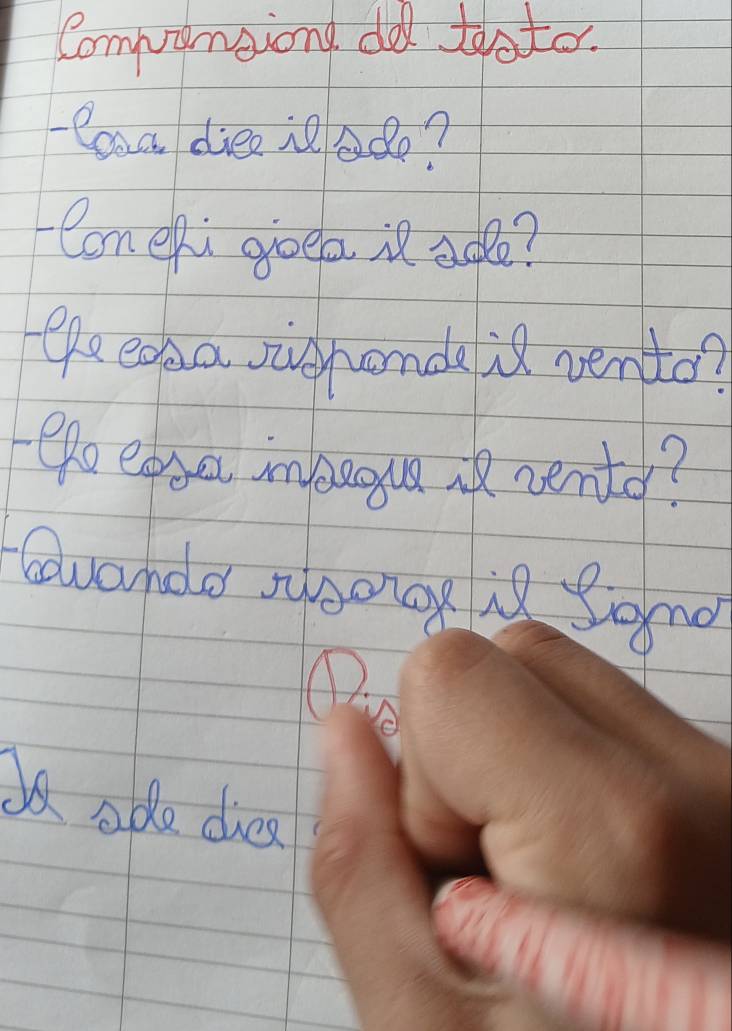 Comprensione del testo.
-Cosa dice il sole?
-Con chi gioca il sole?
-Che cosa risponde il vento?
-Che cosa insegue il vento?
-Quando risorge il Signo
Ris
Il sole dice